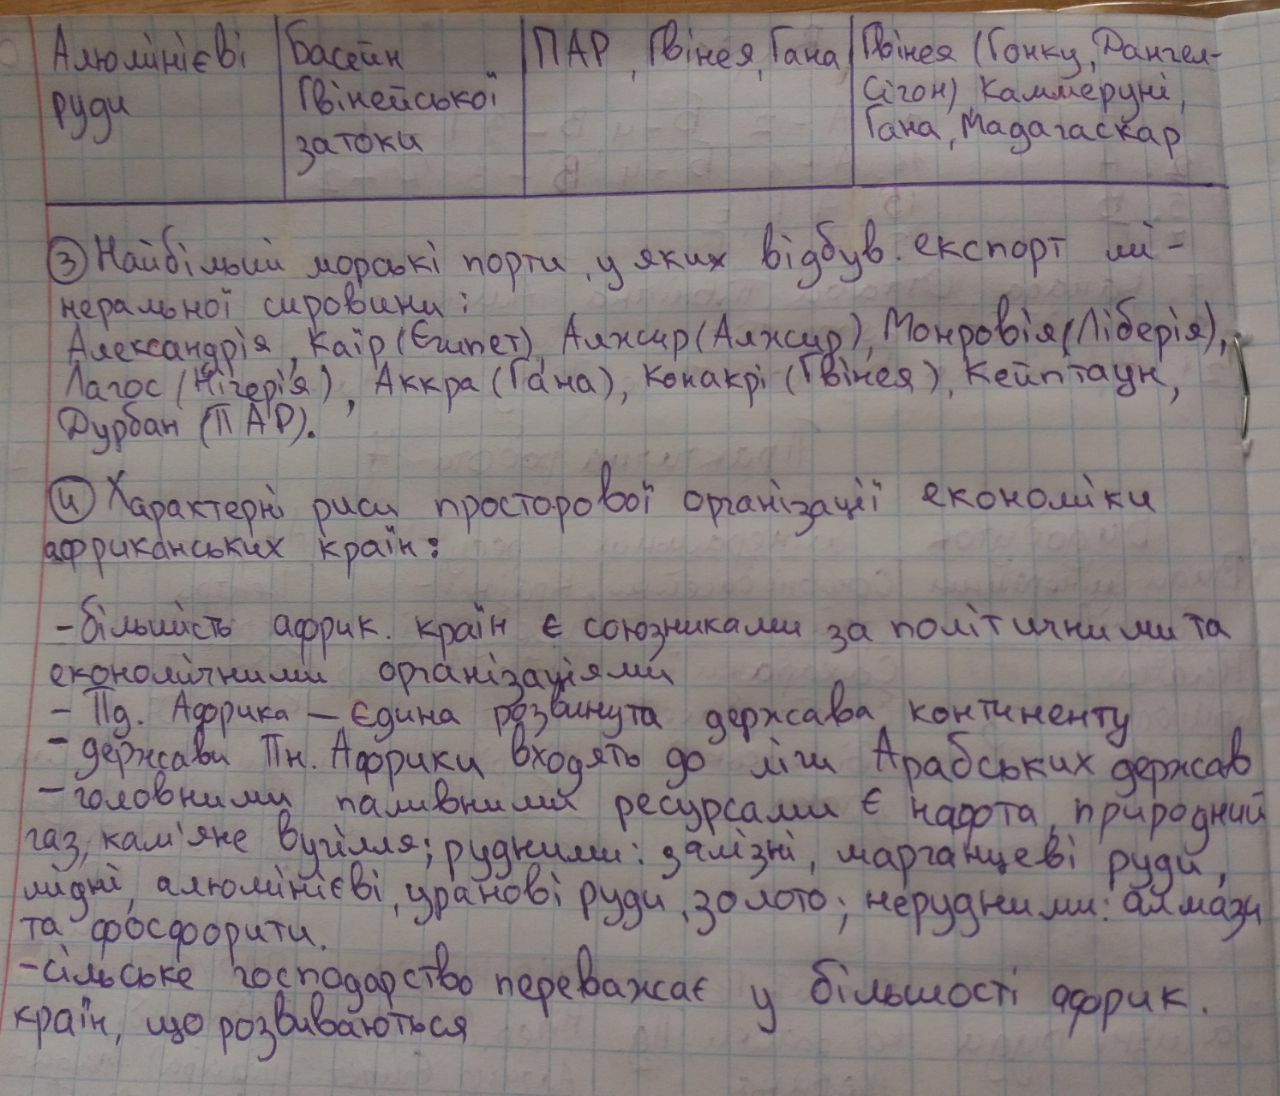 Алюмінієві руди | Басейн Гвінейської затоки | ПАР, Гвінея, Гана | Гвінея (Гонку, Дангел-Сігон), Каммеруні, Гана, Мадагаскар
③ Найбільші морські порти, у яких відбув. експорт мі-
неральної сировини:
Александрія, Каїр (Єгипет), Алжир (Алжир), Монровія (Ліберія),
Лагос (Нігерія), Аккра (Гана), Конакрі (Гвінея), Кейптаун,
Дурбан (ПАР).
④ Характерні риси просторової організації економіки
африканських країн:
- більшість африк. країн є союзниками за політичними та
економічними організаціями
- Пд. Африка — єдина розвинута держава континенту
- держави Пн. Африки входять до ліги Арабських держав
- головними паливними ресурсами є нафта, природний
газ, кам'яне вугілля; рудними: залізні, марганцеві руди,
мідні, алюмінієві, уранові руди, золото; нерудними: алмази
та фосфорити.
- сільське господарство переважає у більшості африк.
країн, що розвиваються